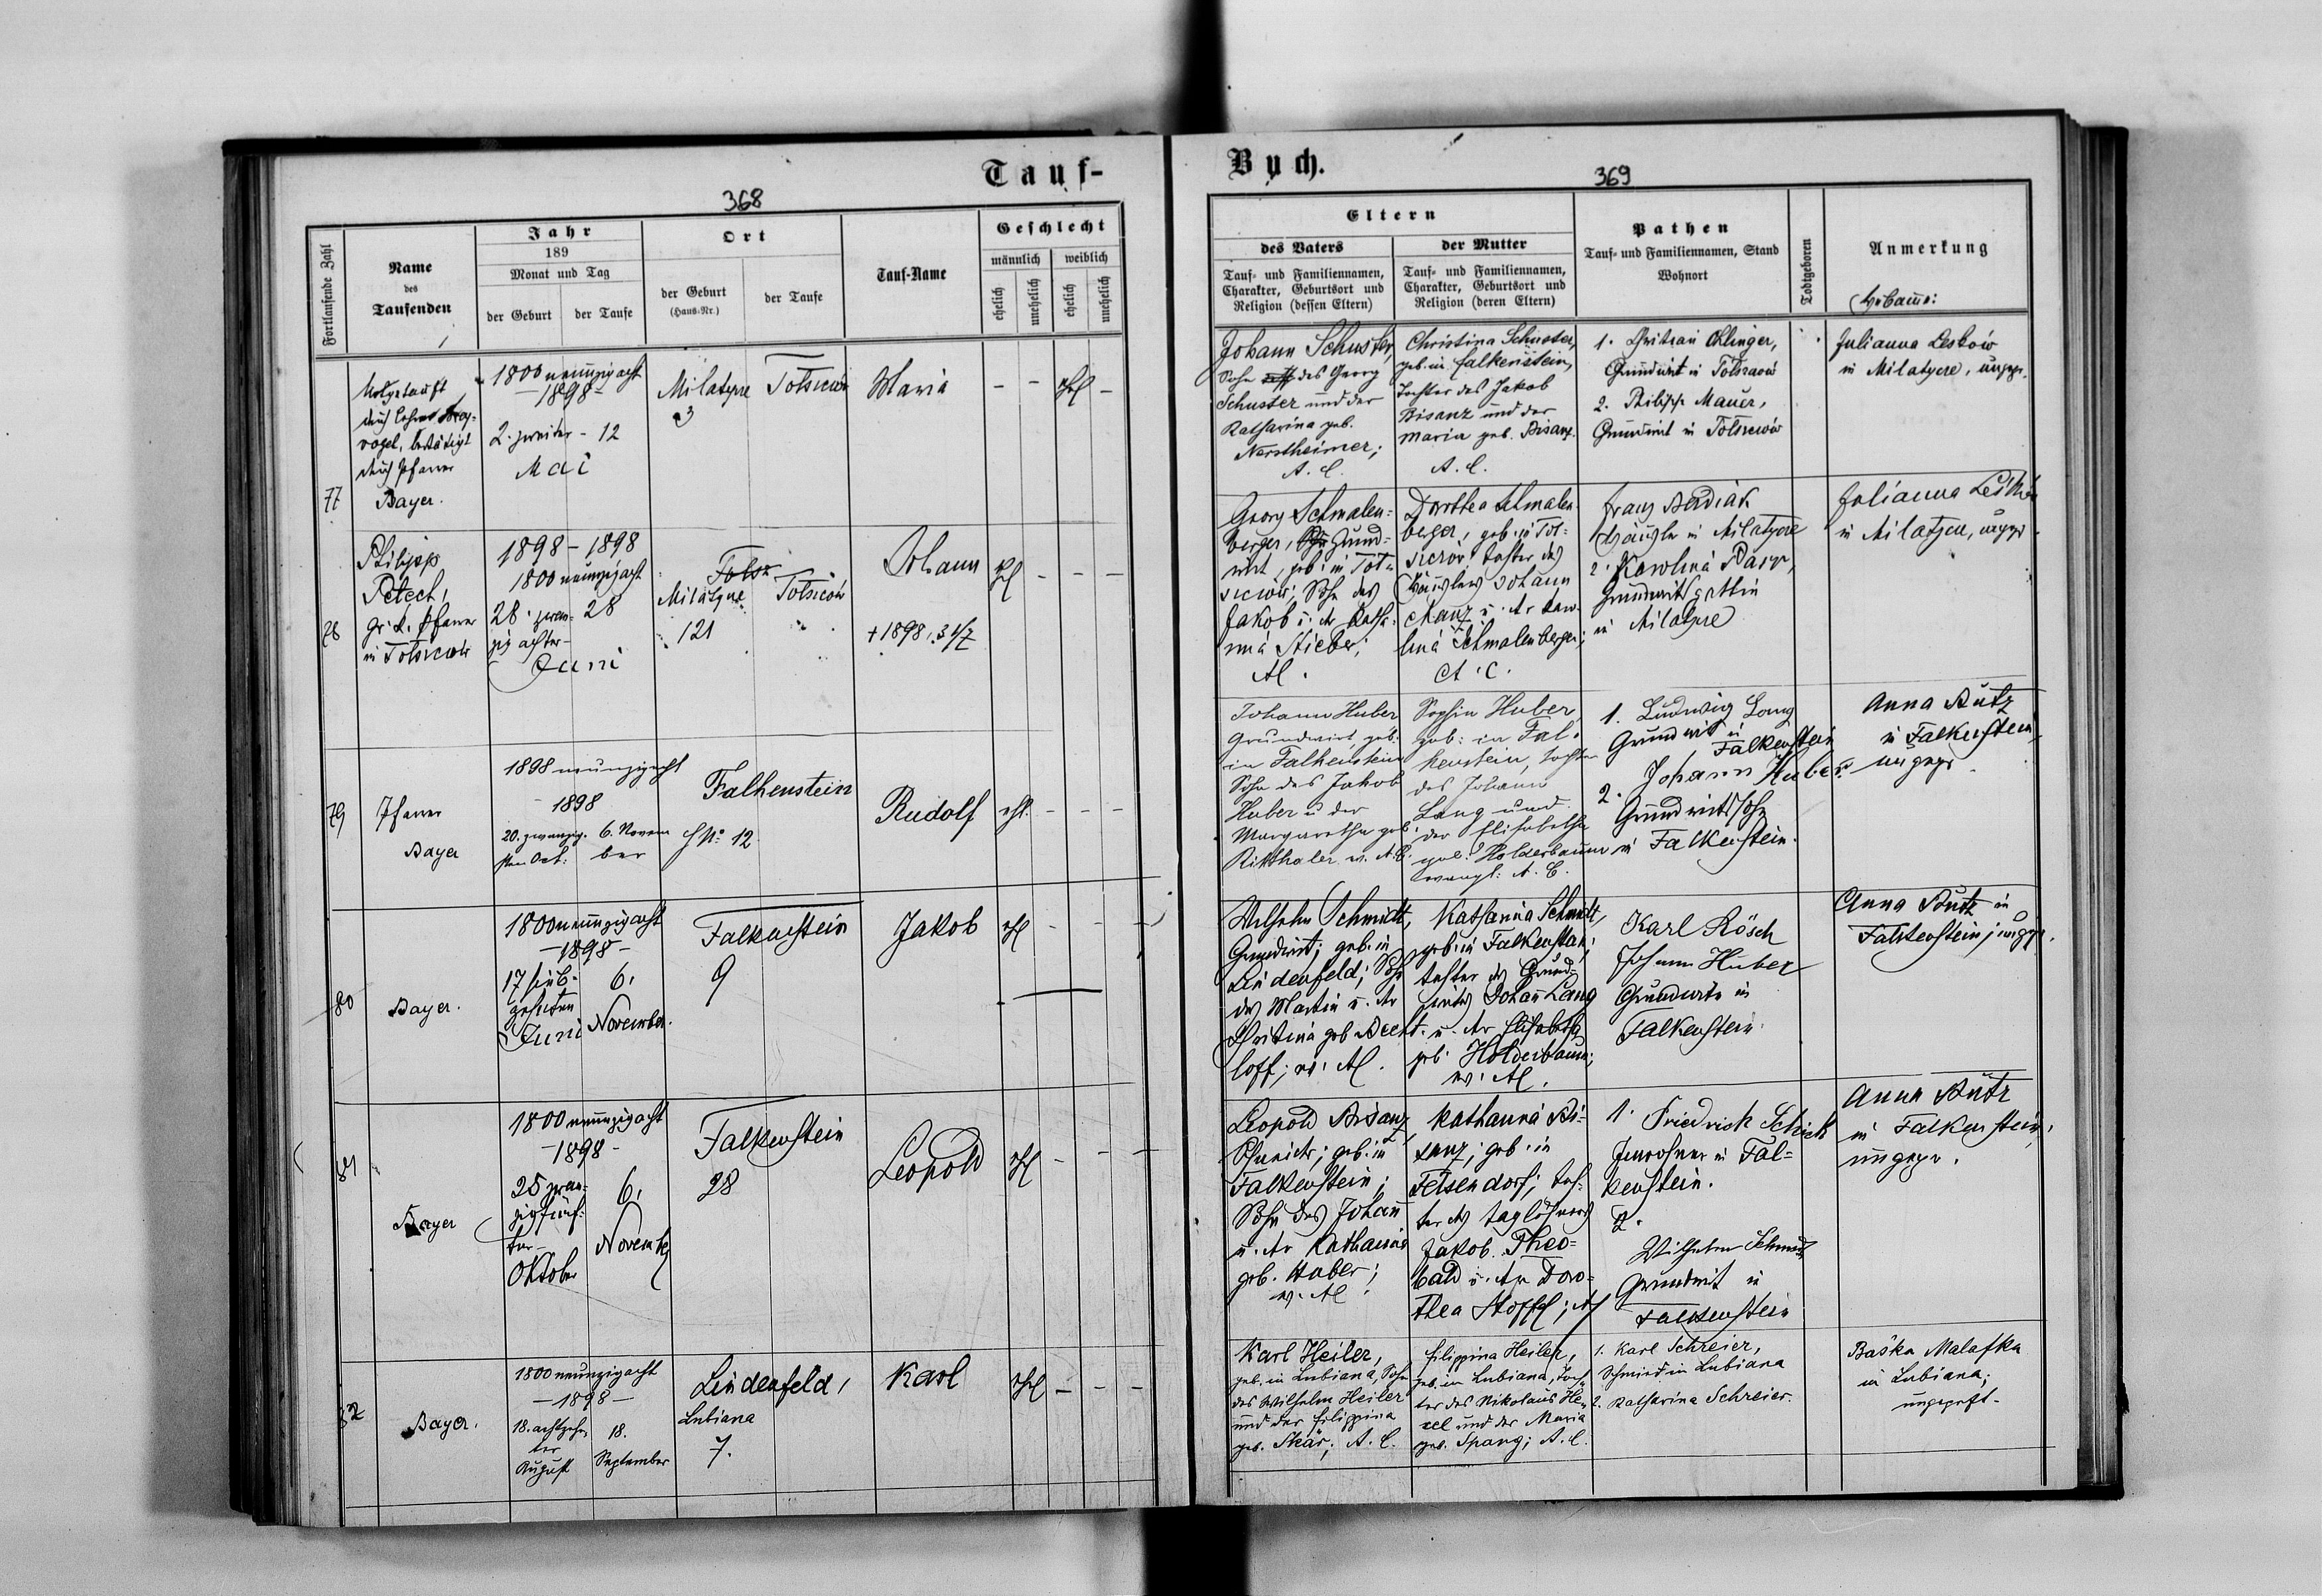 Tauf-
368
Fortlaufende Zahl
Name
des
Taufenden
Jahr
189
Monat und Tag
der Geburt
der Taufe
Ort
der Geburt
(Haus-Nr.)
der Taufe
Tauf-Name
Geschlecht
männlich
weiblich
ehelich
unehelich
ehelich
unehelich
77
Notgetauft
durch Lehrer
vogel, bestätigt
durch Pfarrer
Bayer.
1800 neunzigacht
- 1898 -
2. zweiter - 12
Mai
Milatyre
3
Tolszczów
Maria
- - ehl -
78
Philipp
Petech,
gr. k. Pfarrer
in Tolszczów
1898 - 1898
1800 neunzigacht
28. zwan- 28
zig achter -
Juni
Tolsz
Milatyre
121
Tolszczów
Johann
+ 1898, 31/7
ehl - - -
79
Pfarrer
Bayer
1898 neunzigacht
- 1898
20. zwanzig- 6. Novem
sten Oct: ber
Falkenstein
HNo 12.
Rudolf
ehl. - - -
80
Bayer.
1800 neunzigacht
- 1898 -
17 sieb- 6.
zehnten
Juni November.
Falkenstein
9
Jakob
ehl - - -
81
Bayer
1800 neunzigacht
- 1898 -
25 zwan- 6.
zigfünf-
ter -
Oktober November
Falkenstein
28
Leopold
ehl - - -
82
Bayer.
1800 neunzigacht
- 1898 -
18. achtzehn- 18.
ter
August September
Lindenfeld,
Lubiana
7.
Karl
ehl - - -
Buch.
369
Eltern
des Vaters
Tauf- und Familiennamen,
Charakter, Geburtsort und
Religion (dessen Eltern)
der Mutter
Tauf- und Familiennamen,
Charakter, Geburtsort und
Religion (deren Eltern)
Pathen
Tauf- und Familiennamen, Stand
Wohnort
Todtgeboren
Anmerkung
Hebamme:
Johann Schuster,
Sohn des Georg
Schuster und der
Katharina geb.
Nerstheimer;
A. C.
Christina Schuster,
geb. in Falkenstein,
Tochter des Jakob
Bisanz und der
Maria geb. Bisanz.
A. C.
1. Ohlinger,
Grundwirt in Tolszczów
2. Philipp Mauer,
Grundwirt in Tolszczów
Julianna Leskow
in Milatyere, ungepr.
Georg Schmalen-
berger, Grund-
wirt, geb. in Tol-
szczów; Sohn des
Jakob u. der Katha-
rina Stieber;
AC.
Dorothea Schmalen-
berger, geb. in Tol-
szczow, Tochter des
Häuslers Johann
Manz u. der Karo-
lina Schmalenberger;
A. C.
Franz
Häusler in Milatyere
2. Karolina
Grundwirtsgattin
in Milatyre
Julianna Leskow
in Milatyere, ungepr.
Johann Huber
Grundwirt, geb.
in Falkenstein
Sohn des Jakob
Huber u. der
Margaretha geb.
Rikthaler ev. A. C.
Sophia Huber,
geb: in Fal-
kenstein, Tochter
des Johann
Lang und
der Elisabetha
geb: Holderbaum
evangl: A. C.
1. Ludwig Lang
Grundwirt in
Falkenstein
2. Johann Huber
Grundwirtssohn
in Falkenstein.
Anna Butz
in Falkenstein,
ungepr.
Wilhelm Schmidt,
Grundwirt; geb. in
Lindenfeld; Sohn
des Martin u. der
Christina geb. Becht-
loff; ev. AC.
Katharina Schmidt,
geb in Falkenstein;
Tochter des Grund-
wirtes Johann Lang
u. der Elisabeth
geb. Holderbaum;
ev. AC.
Karl Rösch
Johann Huber
Grundwirte in
Falkenstein.
Anna Butz in
Falkenstein; ungepr.
Leopold Bisanz,
Schmied; geb. in
Falkenstein;
Sohn des Johann
u. der Katharina
geb. Huber;
ev. AC.
Katharina Bi-
sanz; geb. in
Felsendorf; Toch-
ter des Taglöhners
Jakob Theo-
bald u. der Doro-
thea Stoffel; AC
1. Friedrich Schick
Inwohner in Fal-
kenstein.
2.
Wilhelm Schmidt
Grundwirt in
Falkenstein
Anna Butz
in Falkenstein,
ungepr.
Karl Heiler,
geb. in Lubiana, Sohn
des Wilhelm Heiler
und der Filippina
geb. Skär; A. C.
Filippina Heiler,
geb. in Lubiana, Toch-
ter des Nikolaus He-
xel und der Maria
geb. Spang; A. C.
1. Karl Schreier,
Schmied in Lubiana
2. Katharina Schreier.
Baśka Malafka
in Lubiana;
ungeprft.